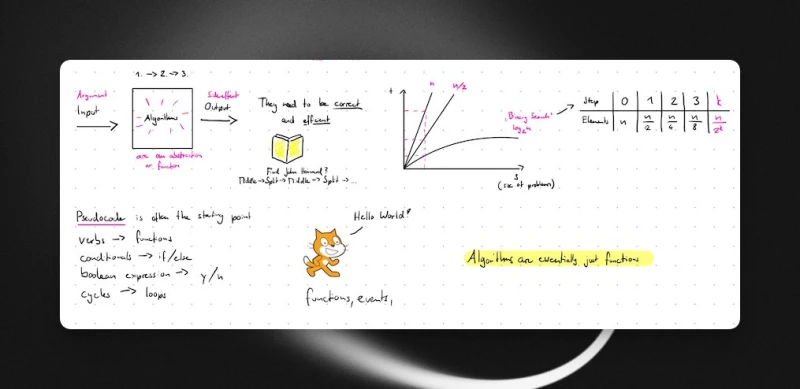 1. → 2. → 3.
Argument
Input
Algorithms
are an abstraction
or function
Side effect
Output.
They need to be correct
and efficient
Find John Harvard?
Middle → Split → Middle → Split → ...
t
n
n/2
"Binary Search"
log₂n
s
(size of problems)
Step 0 1 2 3 k
Elements n n/2 n/4 n/8 n/2ᵏ
Pseudocode is often the starting point
verbs → functions
conditionals → if/else
boolean expression → y/n
cycles → loops
Hello World!
functions, events,
Algorithms are essentially just functions